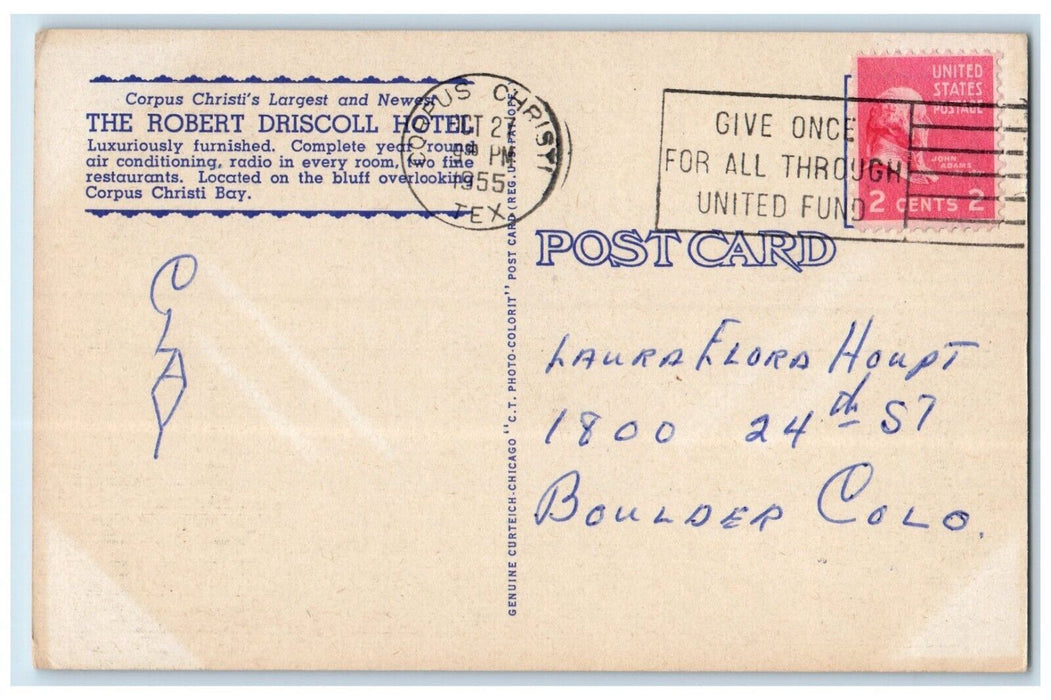 Corpus Christi's Largest and Newest
THE ROBERT DRISCOLL HOTEL
Luxuriously furnished. Complete year round
air conditioning, radio in every room, two fine
restaurants. Located on the bluff overlooking
Corpus Christi Bay.
CORPUS CHRISTI
OCT 27
9 30 PM
1955
TEX
GIVE ONCE
FOR ALL THROUGH
UNITED FUND
UNITED
STATES
POSTAGE
JOHN
ADAMS
2 CENTS 2
GENUINE CURTEICH-CHICAGO "C.T. PHOTO-COLORIT" POST CARD (REG. U.S. PAT. OFF.)
POST CARD
LAURA FLORA HOUPT
1800 24th ST
BOULDER COLO.